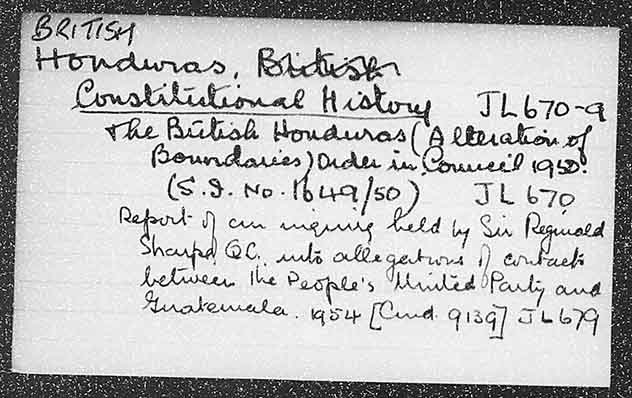 BRITISH
Honduras, British
Constitutional History JL670-9
The British Honduras (Alteration of
Boundaries) Order in Council 1950.
(S.I. No. 1649/50) JL 670
Report of an inquiry held by Sir Reginald
Sharpe QC. into allegations of contacts
between the People's United Party and
Guatemala. 1954 [Cmd. 9139] JL679